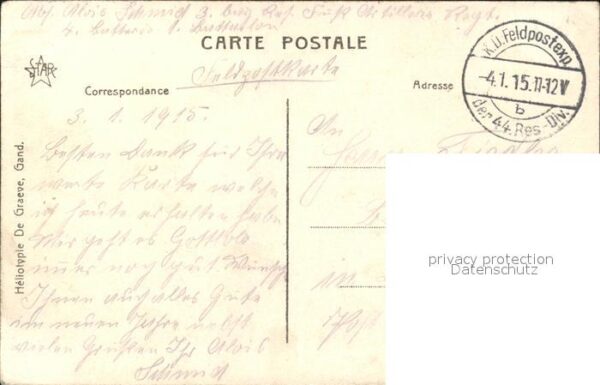 Abs. Alois Schmid 3. bay. Res. Fuß Artillerie Regt.
4. Batterie 1. Battallon
CARTE POSTALE
Feldpostkarte
STAR
Correspondance
Adresse
K.D.Feldpostexp.
-4.1.15.11-12V
b
der 44.Res.-Div.
3. 1. 1915.
Besten Dank für Ihre
werte Karte welche
ich heute erhalten habe
Mir geht es Gottlob
imer noch gut. Wünsche
Ihnen auch alles Gute
im neuen Jahre nebst
vielen Grüßen Ihr Alois
Schmid
An
Herrn
in
Post
Héliotypie De Graeve, Gand.
privacy protection
Datenschutz